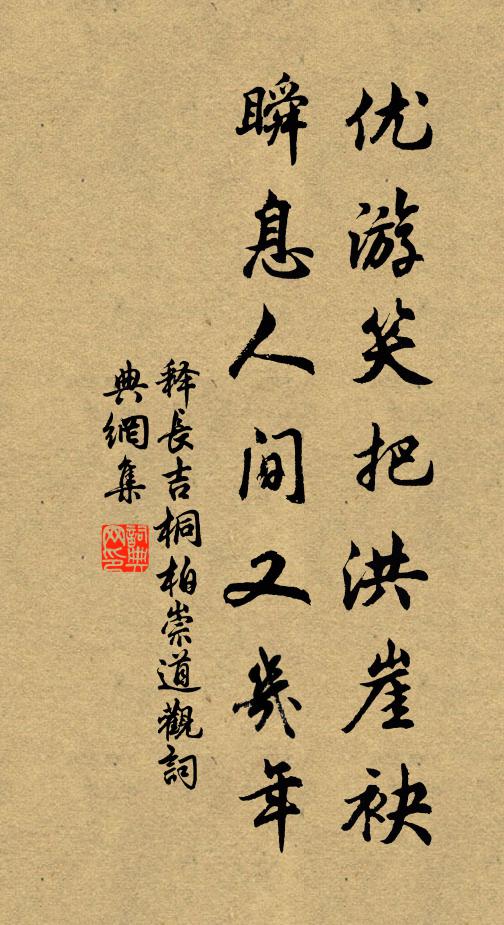 优游笑把洪崖袂
瞬息人间又几年
释长吉桐柏崇道觀詞
典網集
詞典网印